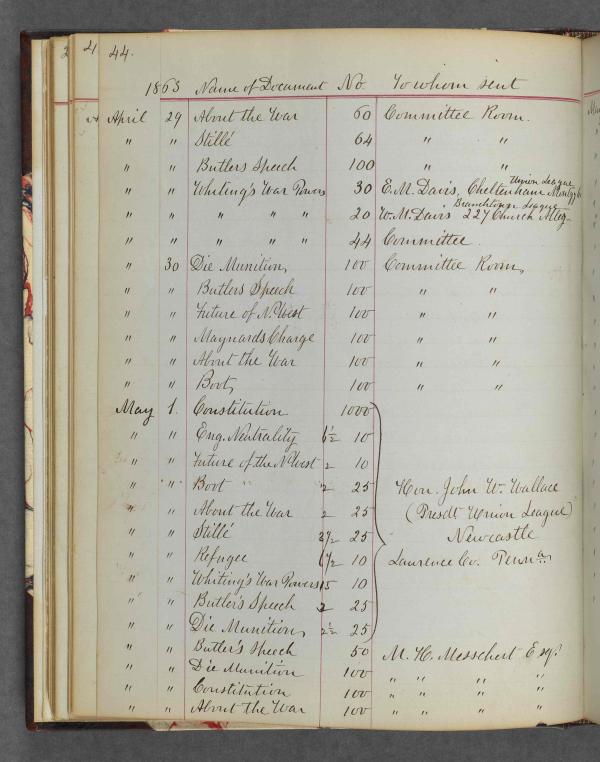 44.
1863 Name of Document No. To whom sent
April 29 About the War 60 Committee Room.
" " Stillé 64 " "
" " Butlers Speech 100 " "
Union League
" " Whiting's War Powers 30 E. M. Davis, Cheltenham
Branchtown League
" " " " " 20 W. M. Davis 227 Church Alley
" " " " " 44 Committee.
" 30 Die Munition, 100 Committee Room,
" " Butlers Speech 100 " "
" " Future of N. West 100 " "
" " Maynards Charge 100 " "
" " About the War 100 " "
" " Boot, 100 " "
May 1. Constitution 1000
" " Eng. Neutrality 6½ 10
" " Future of the N. West 2 10
" " Boot " 2 25 Hon. John W. Wallace
" " About the War 2 25 (Presdt Union League)
" " Stillé 3½ 25 Newcastle
" " Refugee 6½ 10 Lawrence Co. Penna
" " Whiting's War Powers 15 10
" " Butler's Speech 2 25
" " Die Munition, 2½ 25
" " Butler's Speech 50 M. H. Messchert Esq.
" " Die Munition 100 " " " "
" " Constitution 100 " " " "
" " About the War 100 " " " "